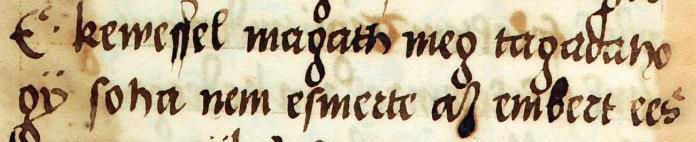 Es kewessel magath meg tagadaho
gÿ soha nem esmerte az embert ees